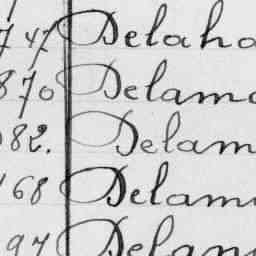 747 Delaha
870 Delama
82. Delam
168 Delam
97 Delan